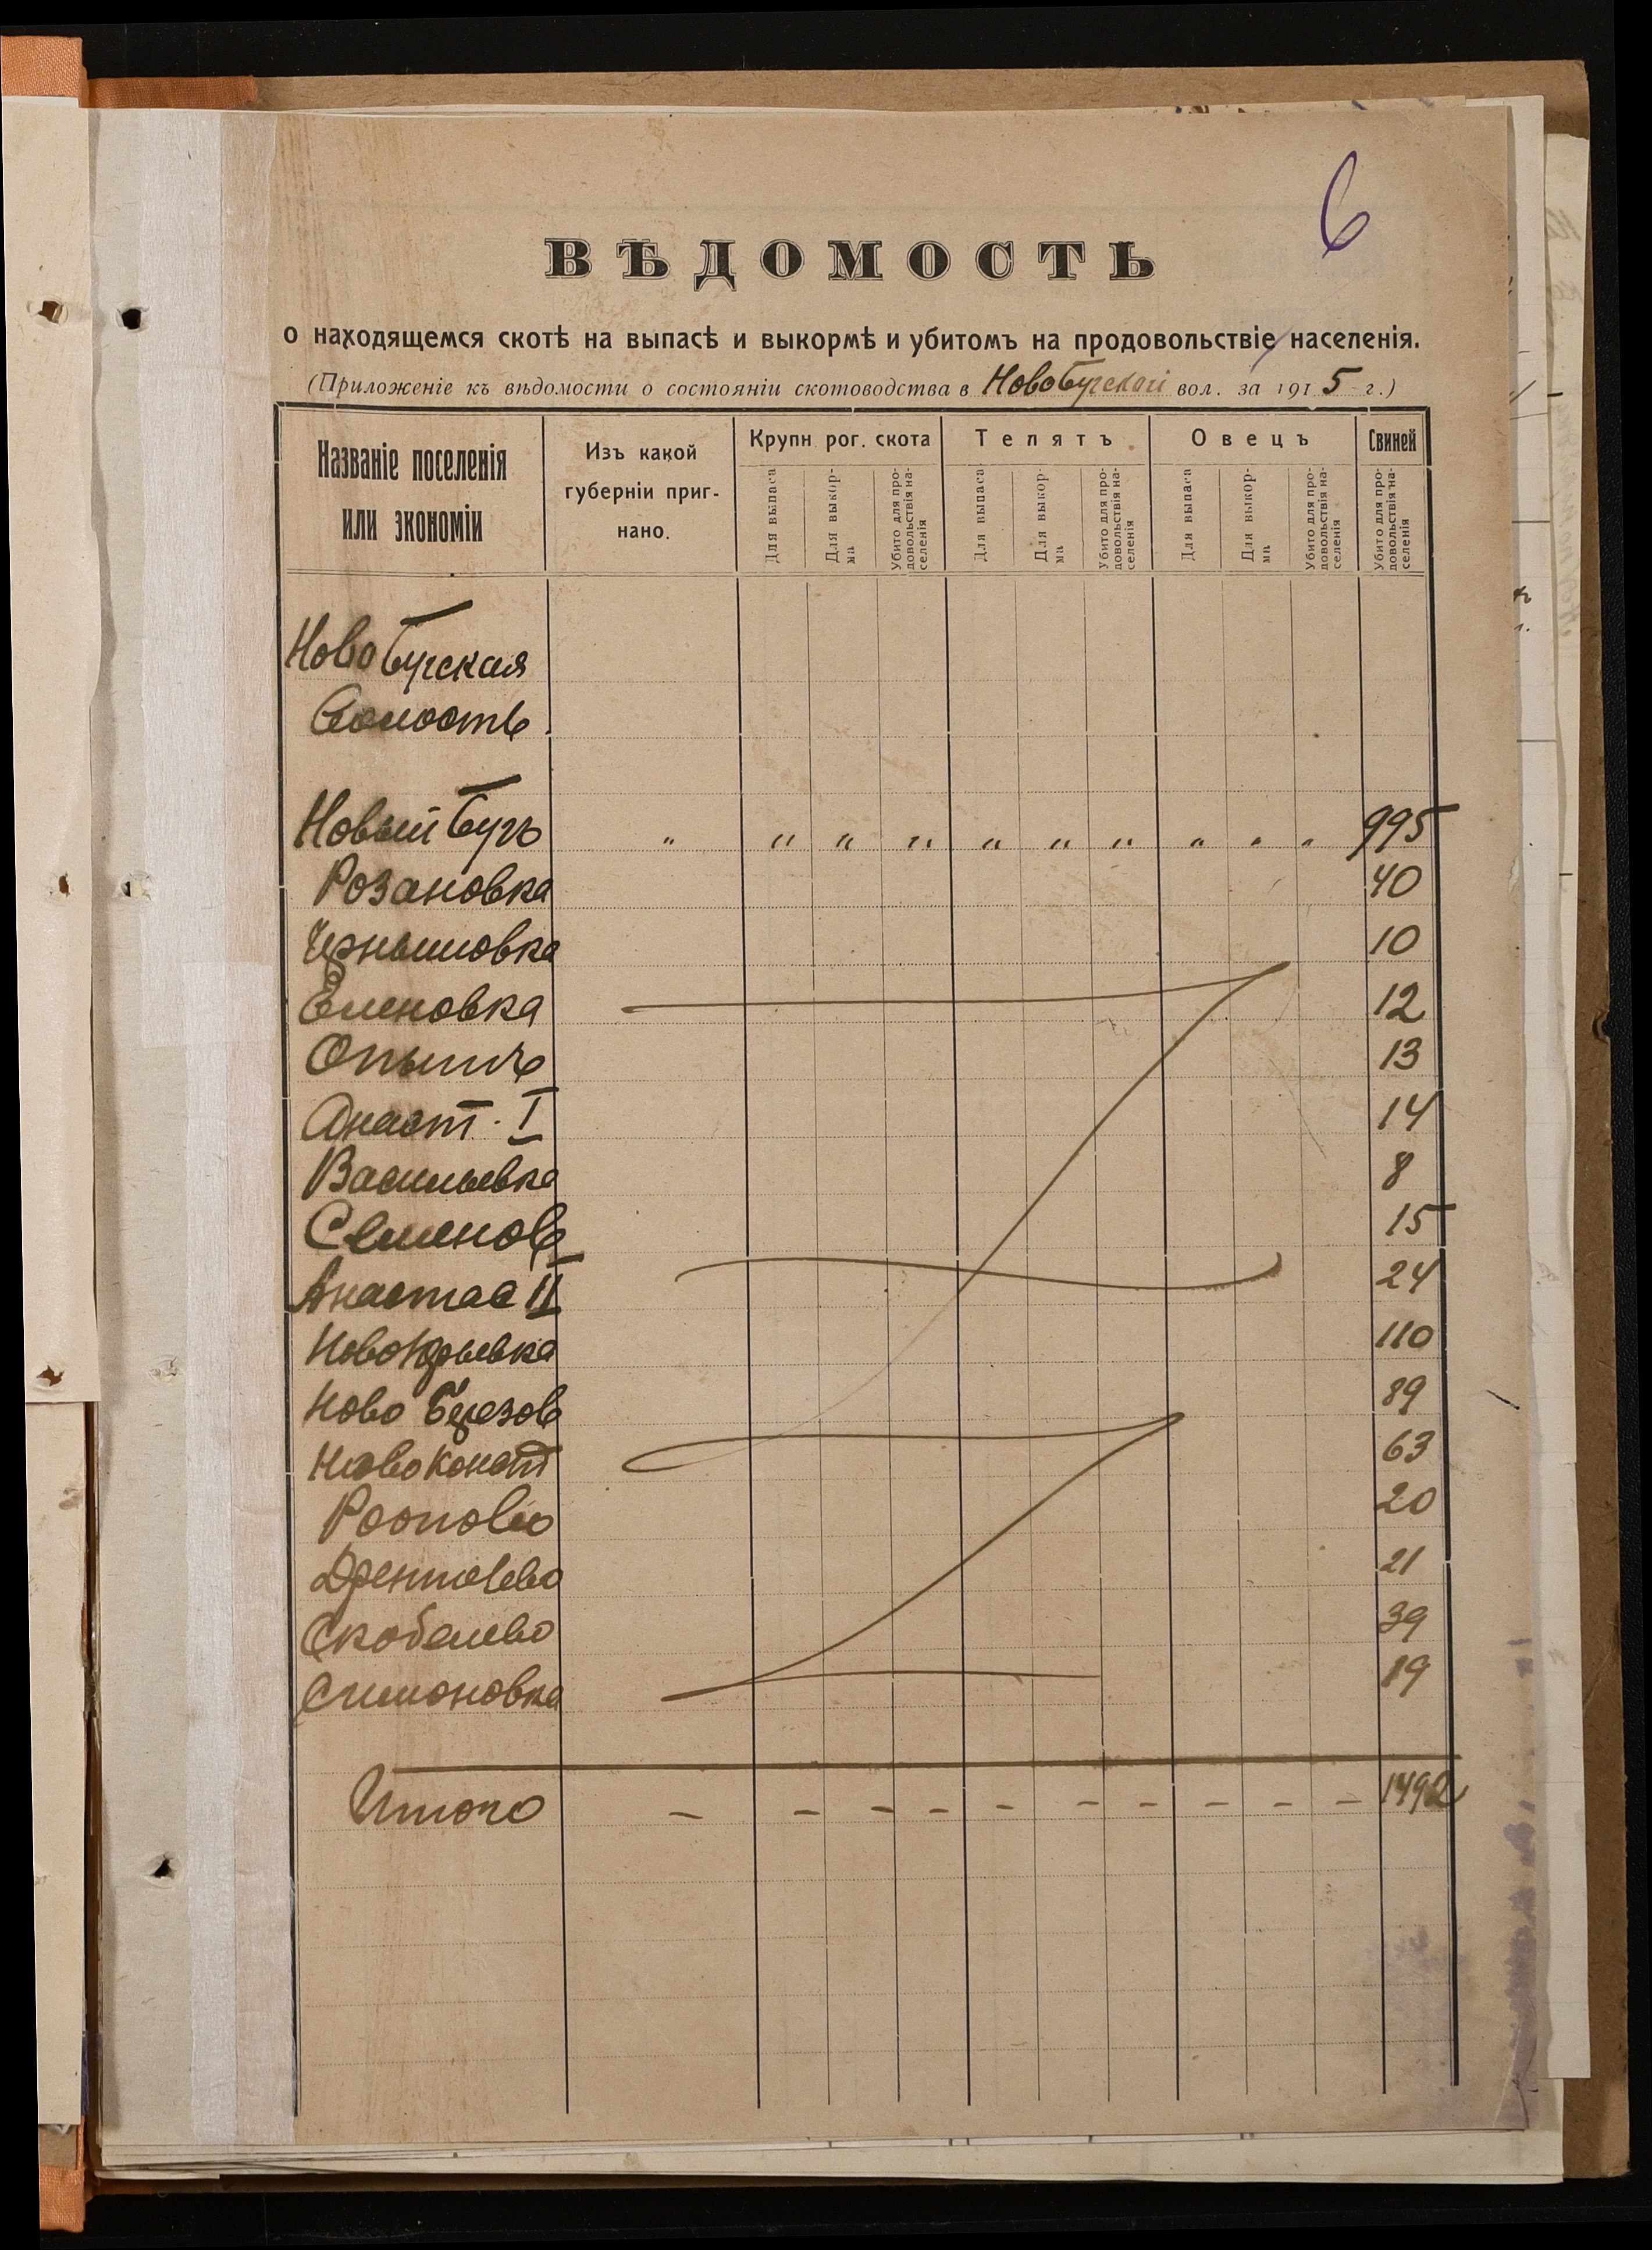 6
ВѢДОМОСТЬ
о находящемся скотѣ на выпасѣ и выкормѣ и убитомъ на продовольствіе населенія.
(Приложеніе къ вѣдомости о состояніи скотоводства в НовоБугской вол. за 1915 г.)
Названіе поселенія или экономіи
Изъ какой губерніи пригнано.
Крупн рог. скота
Телятъ
Овецъ
Свиней
Для выпаса
Для выкорма
Убито для продовольствія населенія
Для выпаса
Для выкорма
Убито для продовольствія населенія
Для выпаса
Для выкорма
Убито для продовольствія населенія
Убито для продовольствія населенія
НовоБугская
Волость
Новый Бугъ " " " " " " " " " " 995
Розановка 40
Чернышовка 10
Еленовка 12
13
Анаст. I 14
Васильевка 8
Семенов 15
Анастас II 24
НовоЮрьевка 110
Ново Березов 89
Новоконст 63
20
21
Скобелево 39
Симоновка 19
Итого – – – – – – – – – – 1492